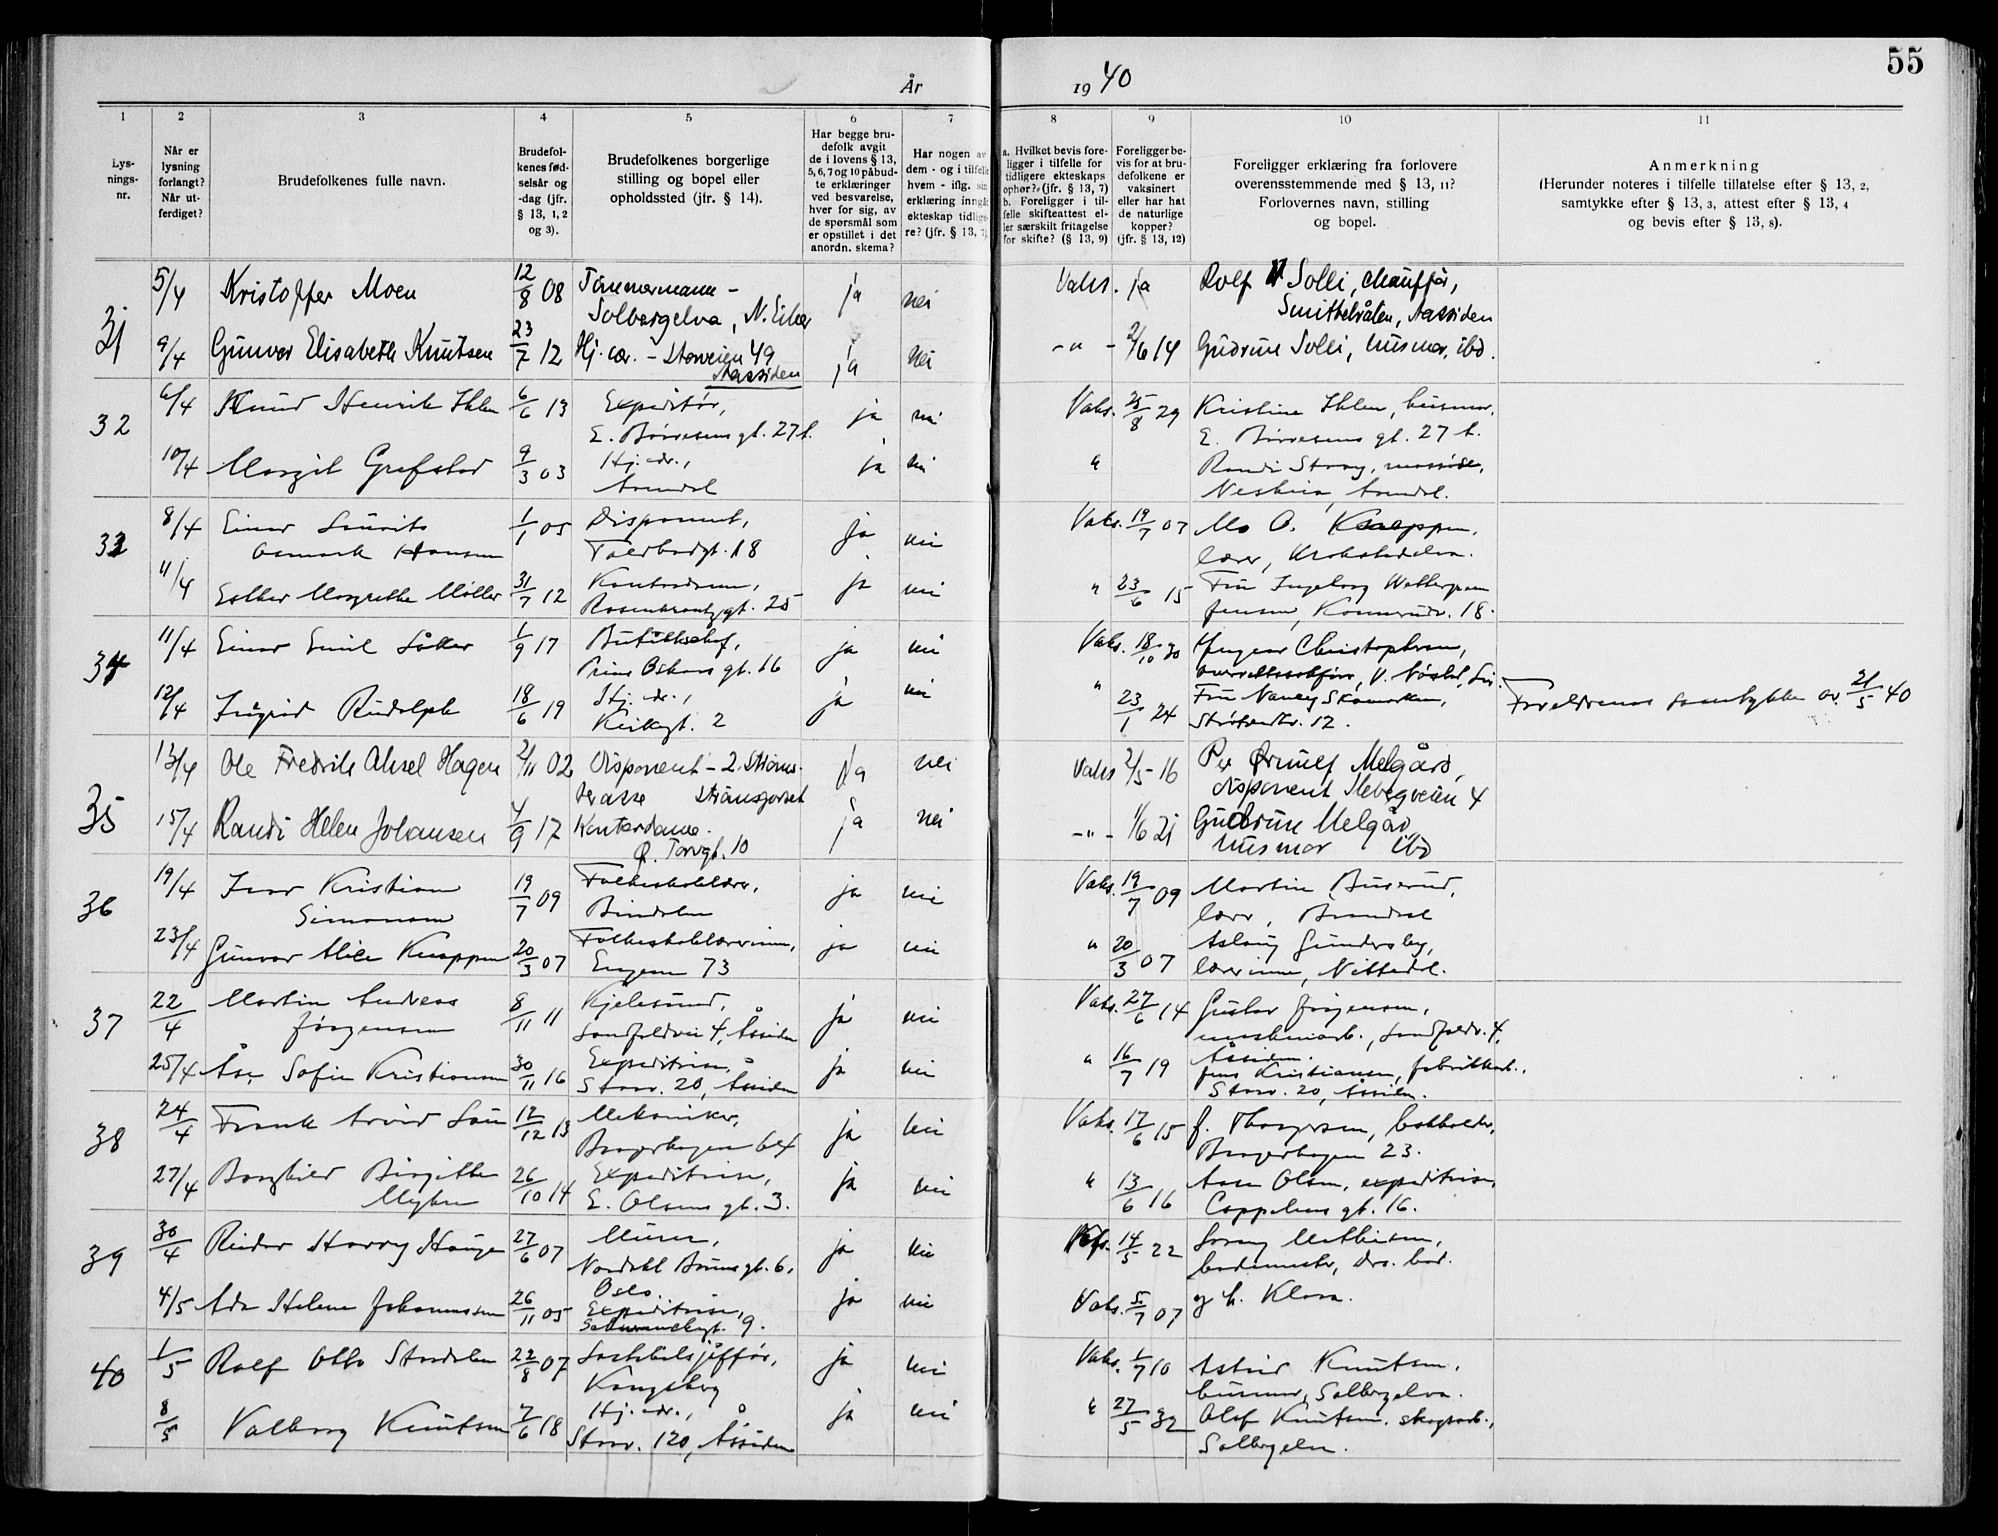 55
År 1940
1 2 3 4 5 6 7 8 9 10 11
Lys-
nings-
nr.
Når er
lysning
forlangt?
Når ut-
ferdiget?
Brudefolkenes fulle navn.
Brudefol-
kenes fød-
selsår og
-dag (jfr.
§ 13, 1, 2
og 3).
Brudefolkenes borgerlige
stilling og bopel eller
opholdssted (jfr. § 14).
Har begge bru-
defolk avgit
de i lovens § 13,
5, 6, 7 og 10 påbud-
te erklæringer
ved besvarelse,
hver for sig, av
de spørsmål som
er opstillet i det
anordn. skema?
Har nogen av
dem - og i tilfelle
hvem - iflg. sin
erklæring inngåt
ekteskap tidlige-
re? (jfr. § 13, 7)
a. Hvilket bevis fore-
ligger i tilfelle for
tidligere ekteskaps
ophør? (jfr. § 13, 7)
b. Foreligger i til-
felle skifteattest el-
ler særskilt fritagelse
for skifte? (§ 13, 9)
Foreligger be-
vis for at bru-
defolkene er
vaksinert
eller har hat
de naturlige
kopper?
(jfr. § 13, 12)
Foreligger erklæring fra forlovere
overensstemmende med § 13, 11?
Forlovernes navn, stilling
og bopel.
Anmerkning
(Herunder noteres i tilfelle tillatelse efter § 13, 2,
samtykke efter § 13, 3, attest efter § 13, 4
og bevis efter § 13, 8).
31 5/4 Kristoffer Moen 12/8 08 Tømmermann - ja nei Vaks. ja Rolf Solli, chauffør,
Solbergelva, N. Eiker Smittebråten, Aassiden
9/4 Gunvor Elisabeth Knutsen 23/7 12 Hj. vær. - Storveien 49 ja nei -"- 2/6 14 Gudrun Solli, husmor, ibd.
Aassiden
32 6/4 Knud Henrik Ihlen 6/6 13 Expeditør, ja nei Vaks. 25/8 29 Kristine Ihlen, husmor,
E. Børresens gt. 27 b. E. Børresens gt. 27 b.
10/4 Margit Grefstad 9/3 03 Hj. vær., ja nei " Randi Stray,
Arendal Arendal.
33 8/4 Einar Laurits 1/1 05 Disponent, ja nei Vaks. 19/7 07 Mo O. Knappen,
Hansen Tollbodgt. 18 lærer, Krokstadelva.
11/4 Esther Margrethe Møller 31/7 12 Kontordame, ja nei " 23/6 15 Fru Ingeborg
Rosenkrantzgt. 25 Jensen, Konnerudv. 18.
34 11/4 Einar Emil 1/9 17 Butikksjef, ja nei Vaks. 18/10 30 Yngvar Christophersen,
Prins Oskars gt. 16
12/4 Ingrid Rudolph 18/6 19 Hj. vr., ja nei " 23/1 24 Fru Nancy Skamarken,
Kirkegt. 2 12. Foreldrenes samtykke av 21/5 40
35 13/4 Ole Fredrik Aksel Hagen 2/11 02 Disponent - 2. Strøms- ja nei Vaks 2/5 - 16 Per Ørnulf Melgård,
terasse Strømsgodset disponent 4
15/4 Randi Helen Johansen 4/9 17 Kontordame. ja nei -"- 1/6 21 Gudrun Melgård
Ø. Torvgt. 10 husmor ibd
36 19/4 Ivar Kristian 19/7 09 Folkeskolelærer, ja nei Vaks. 19/7 09 Martin Buserud,
Simonsen Bindalen lærer,
23/4 Gunvor Alice Knappen 20/3 07 Folkeskolelærerinne, ja nei " 20/3 07 Aslaug Gundersby,
Engene 73 lærerinne, Nittedal.
37 22/4 Martin Andreas 8/11 11 ja nei Vaks. 27/6 14 Gustav Jørgensen,
Jørgensen 4, Åssiden maskinarb., 4,
Åssiden.
25/4 Åse Sofie Kristiansen 30/11 16 Expeditrise, ja nei " 16/7 19 Jens Kristiansen, fabrikkarb.,
Storv. 20, Åssiden Storv. 20, Åssiden.
38 24/4 Frank Arvid 12/12 13 Mekaniker, ja nei Vaks. 17/6 15 J. Thorgersen, bokholder,
Bragerhagen 64 Bragerhagen 23.
27/4 Borghild Birgitte 26/10 14 Expeditrise, ja nei " 13/6 16 Aase Olsen, expeditrise,
Myhre E. Olsens gt. 3. Cappelens gt. 16.
39 30/4 Reidar Harry Hauge 27/6 07 Murer, ja nei Vaks. 14/5 22 Mathisen,
Nordahl Bruns gt. 6, bademester, Drs. bad.
Oslo.
4/5 Ada Helene Johannessen 26/11 05 Expeditrise, ja nei Vaks. 5/7 07 og h. Klara.
9.
40 1/5 Rolf Otto Stordalen 22/8 07 Lastebilsjåfør, ja nei Vaks. 1/7 10 Astrid Knutsen,
Kongsberg husmor, Solbergelva.
8/5 Valborg Knutsen 7/6 18 Hj. vr., ja nei " 27/5 32 Olaf Knutsen, skogsarb.,
Storv. 120, Åssiden Solbergelva.